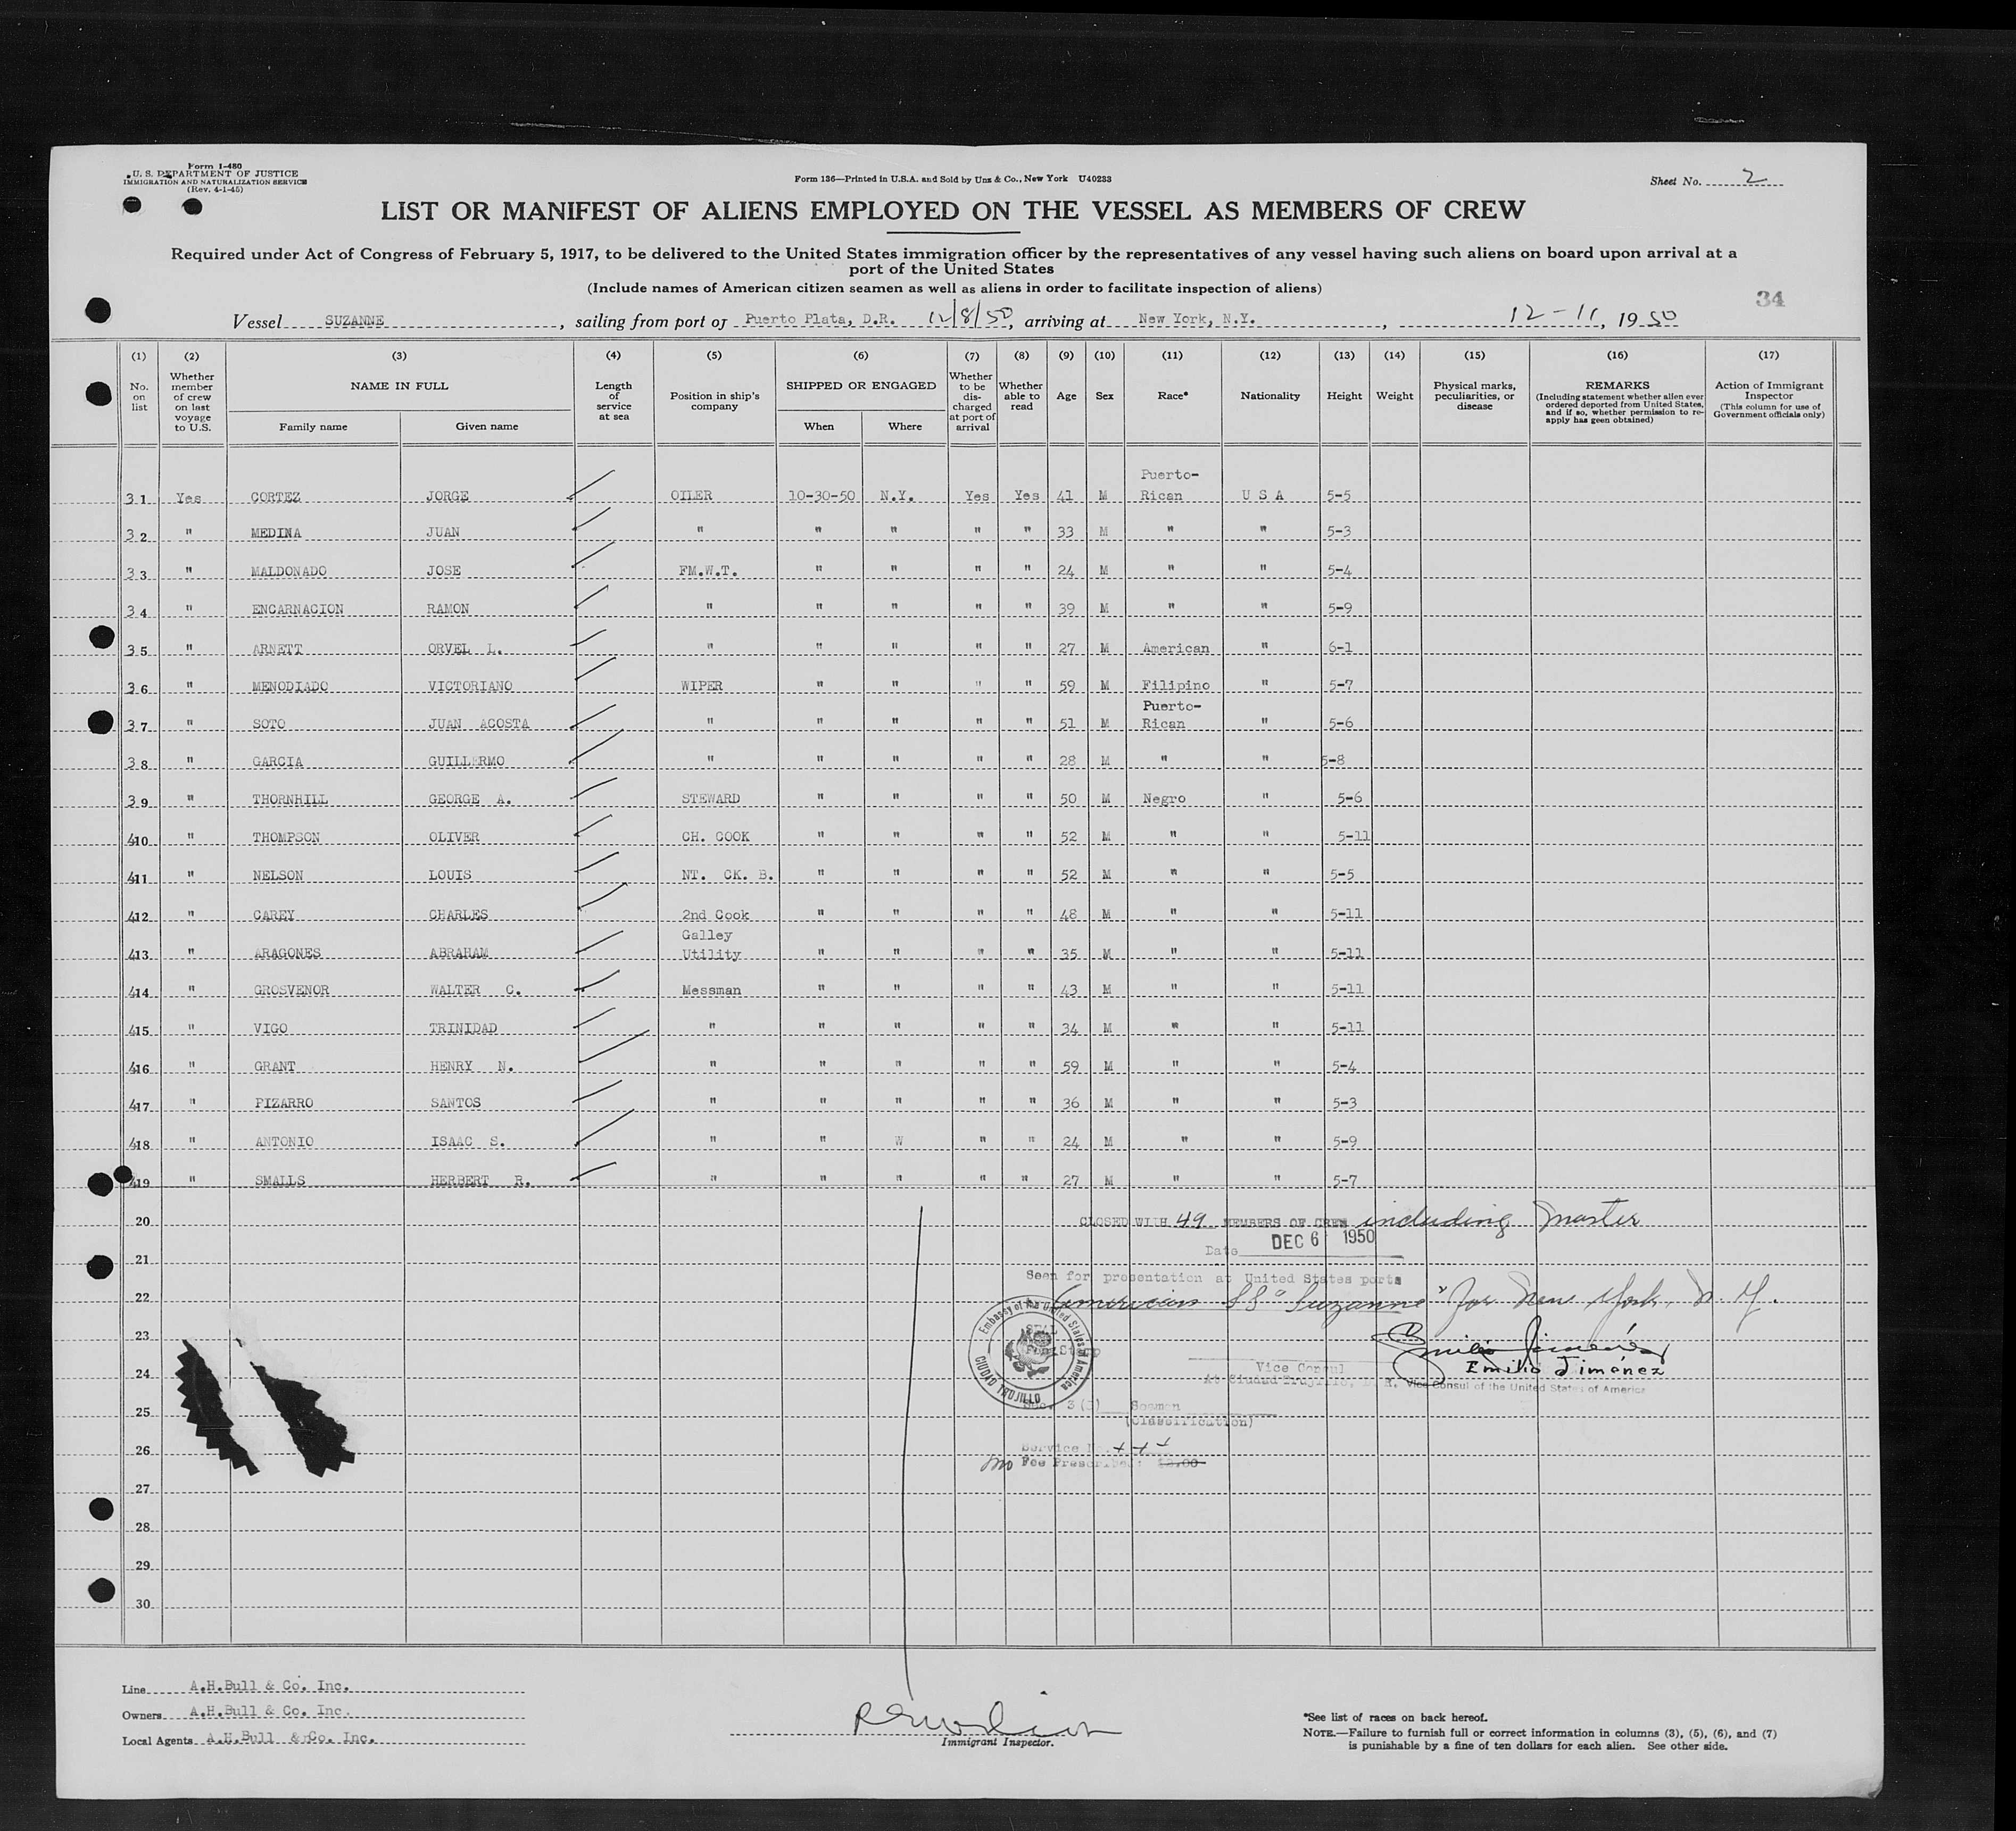 Form I-480
U. S. DEPARTMENT OF JUSTICE
IMMIGRATION AND NATURALIZATION SERVICE
(Rev. 4-1-45)
Form 136—Printed in U.S.A. and Sold by Unz & Co., New York U40233
Sheet No. 2
LIST OR MANIFEST OF ALIENS EMPLOYED ON THE VESSEL AS MEMBERS OF CREW
Required under Act of Congress of February 5, 1917, to be delivered to the United States immigration officer by the representatives of any vessel having such aliens on board upon arrival at a
port of the United States
(Include names of American citizen seamen as well as aliens in order to facilitate inspection of aliens)
34
Vessel SUZANNE, sailing from port of Puerto Plata, D.R. 12/8/50, arriving at New York, N.Y., 12-11, 1950
(1) (2) (3) (4) (5) (6) (7) (8) (9) (10) (11) (12) (13) (14) (15) (16) (17)
No. on list
Whether member of crew on last voyage to U.S.
NAME IN FULL
Family name
Given name
Length of service at sea
Position in ship's company
SHIPPED OR ENGAGED
When
Where
Whether to be discharged at port of arrival
Whether able to read
Age
Sex
Race*
Nationality
Height
Weight
Physical marks, peculiarities, or disease
REMARKS
(Including statement whether alien ever ordered deported from United States, and if so, whether permission to re-apply has geen obtained)
Action of Immigrant Inspector
(This column for use of Government officials only)
31 Yes CORTEZ JORGE OILER 10-30-50 N.Y. Yes Yes 41 M Puerto-Rican U S A 5-5
32 " MEDINA JUAN " " " " " 33 M " " 5-3
33 " MALDONADO JOSE FM.W.T. " " " " 24 M " " 5-4
34 " ENCARNACION RAMON " " " " " 39 M " " 5-9
35 " ARNETT ORVEL L. " " " " " 27 M American " 6-1
36 " MENODIADO VICTORIANO WIPER " " " " 59 M Filipino " 5-7
37 " SOTO JUAN ACOSTA " " " " " 51 M Puerto-Rican " 5-6
38 " GARCIA GUILLERMO " " " " " 28 M " " 5-8
39 " THORNHILL GEORGE A. STEWARD " " " " 50 M Negro " 5-6
410 " THOMPSON OLIVER CH. COOK " " " " 52 M " " 5-11
411 " NELSON LOUIS NT. CK. B. " " " " 52 M " " 5-5
412 " CAREY CHARLES 2nd Cook " " " " 48 M " " 5-11
413 " ARAGONES ABRAHAM Galley Utility " " " " 35 M " " 5-11
414 " GROSVENOR WALTER C. Messman " " " " 43 M " " 5-11
415 " VIGO TRINIDAD " " " " " 34 M " " 5-11
416 " GRANT HENRY N. " " " " " 59 M " " 5-4
417 " PIZARRO SANTOS " " " " " 36 M " " 5-3
418 " ANTONIO ISAAC S. " " W " " 24 M " " 5-9
419 " SMALLS HERBERT R. " " " " " 27 M " " 5-7
20 CLOSED WITH 49 MEMBERS OF CREW including Master
Date DEC 6 1950
21
Seen for presentation at United States ports
22 American SS "Suzanne" for New York, N.Y.
23
Embassy of the United States of America
CIUDAD TRUJILLO
Emilio Jiménez
24 Vice Consul
At Ciudad Trujillo, D. R. Vice Consul of the United States of America
25 3 (5) Seaman
(Classification)
26 Service No.
no Fee Prescribed: $2.00
27
28
29
30
Line A.H.Bull & Co. Inc.
Owners A.H.Bull & Co. Inc.
Local Agents A.H.Bull & Co. Inc.
Immigrant Inspector.
*See list of races on back hereof.
NOTE.—Failure to furnish full or correct information in columns (3), (5), (6), and (7)
is punishable by a fine of ten dollars for each alien. See other side.